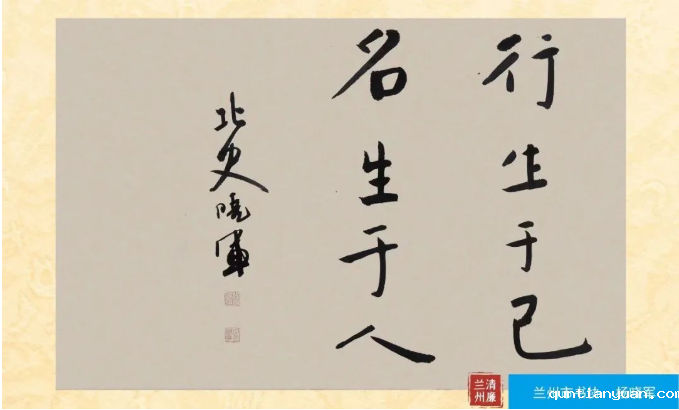 行生于己
名生于人
北史晓军
清廉
兰州
兰州市书协 杨晓军
quntianyuan.com